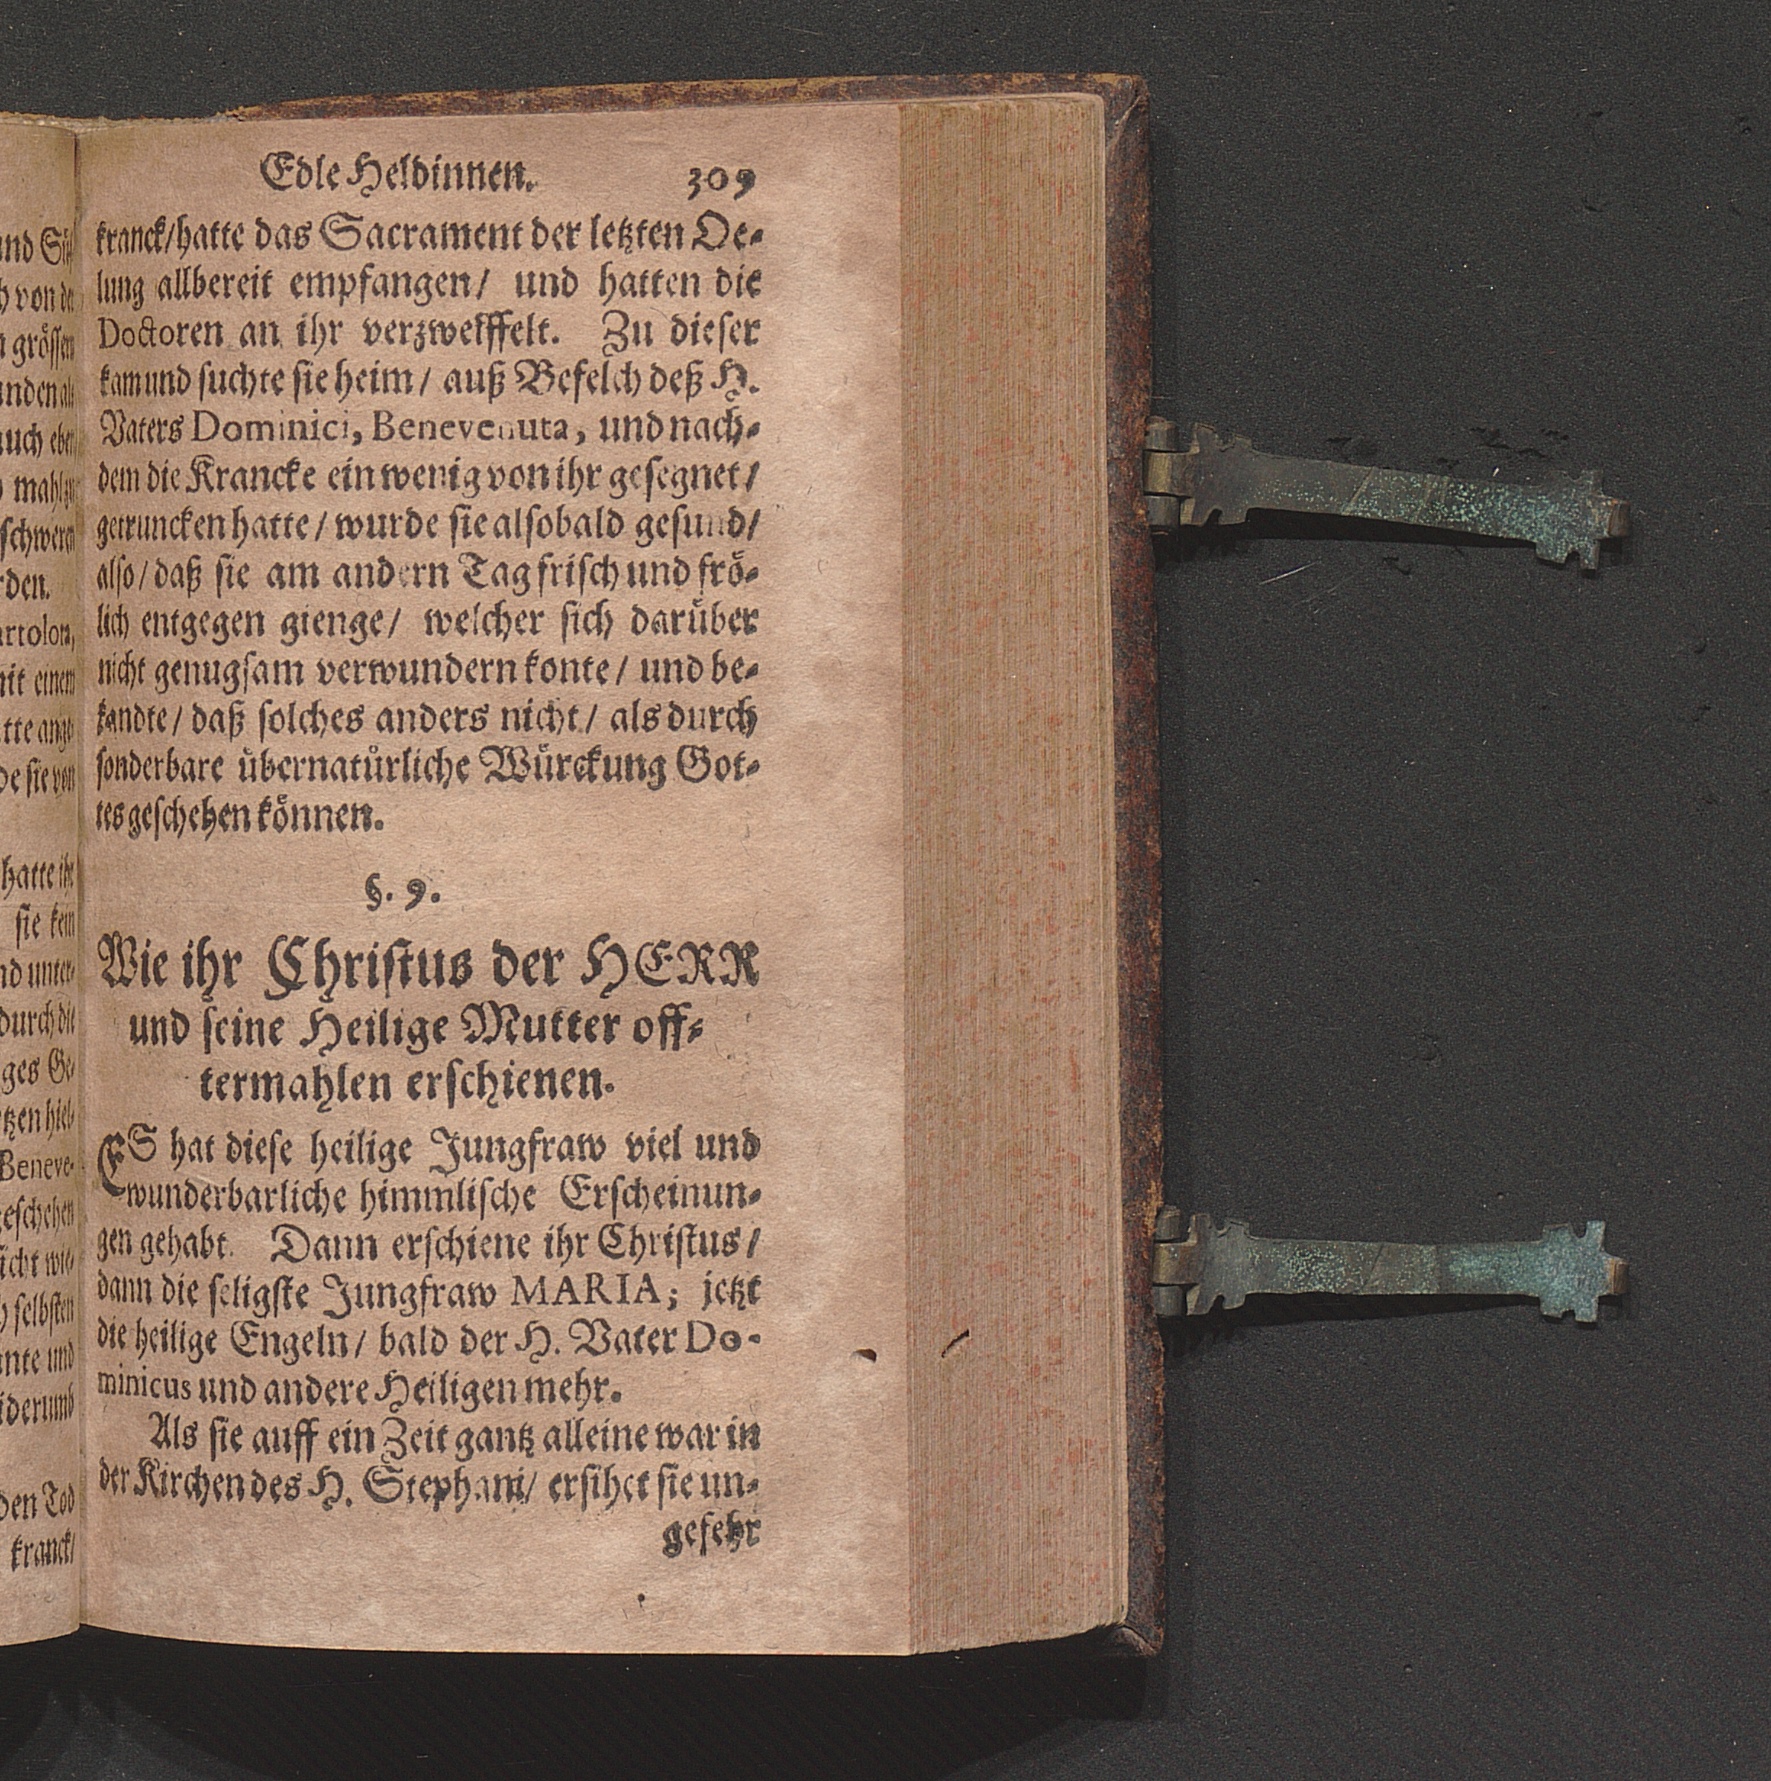 Edle Heldinnen. 309
kranck/hatte das Sacrament der letzten Oe-
lung allbereit empfangen/ und hatten die
Doctoren an ihr verzweiffelt. Zu dieser
kam und suchte sie heim/ auß Befelch deß H.
Vaters Dominici, Benevenuta, und nach-
dem die Krancke ein wenig von ihr gesegnet/
getruncken hatte/ wurde sie alsobald gesund/
also/ daß sie am andern Tag frisch und frö-
lich entgegen gienge/ welcher sich darüber
nicht genugsam verwundern konte/ und be-
kandte/ daß solches anders nicht/ als durch
sonderbare übernatürliche Würckung Got-
tes geschehen können.
§. 9.
Wie ihr Christus der HERR
und seine Heilige Mutter off-
termahlen erschienen.
ES hat diese heilige Jungfraw viel und
wunderbarliche himmlische Erscheinun-
gen gehabt. Dann erschiene ihr Christus/
dann die seligste Jungfraw MARIA; jetzt
die heilige Engeln/ bald der H. Vater Do-
minicus und andere Heiligen mehr.
Als sie auff ein Zeit gantz alleine war in
der Kirchen des H. Stephani/ ersihet sie un-
gefehr